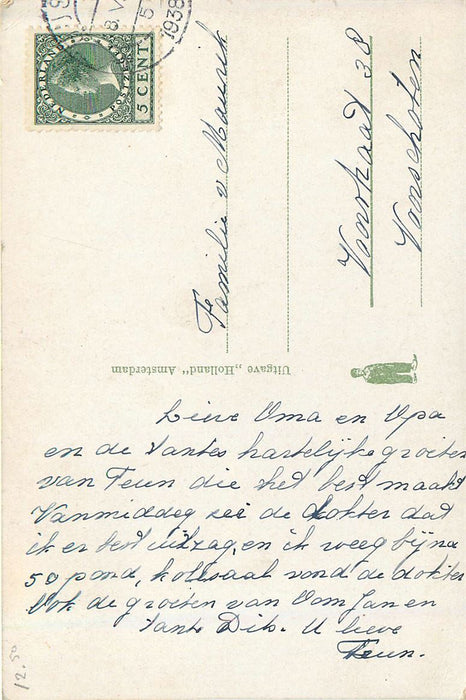 8 V
5
1938
NEDERLAND
POSTZEGEL
5 CENT
Familie v Maurik
Voorschoten
Uitgave „Holland" Amsterdam
Lieve Oma en Opa
en de Tantes hartelijke groeten
van Teun die het best maakt
Vanmiddag zei de dokter dat
ik er best uitzag, en ik weeg bijna
50 pond, kolosaal vond de dokter
Ook de groeten van Oom Jan en
Tante Dits. U lieve
Teun.
12.50